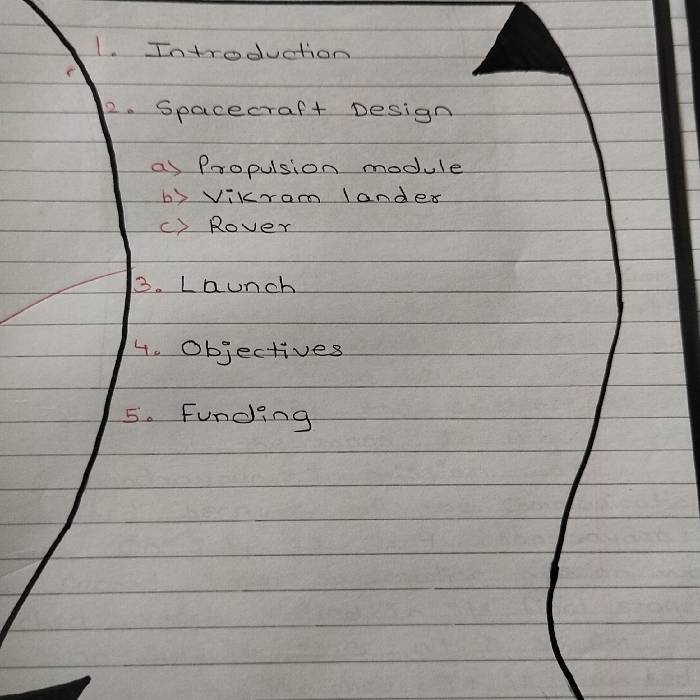 1. Introduction
2. Spacecraft Design
a) Propulsion module
b) Vikram lander
c) Rover
3. Launch
4. Objectives
5. Funding